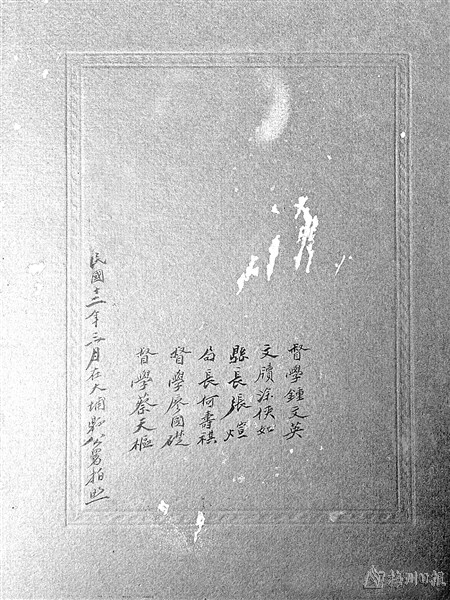 督學鍾文英
文牘涂俠如
縣長張煊
局長何壽祺
督學廖國礎
督學蔡天樞
民國十二年三月在大埔縣公署拍照
梅州日报